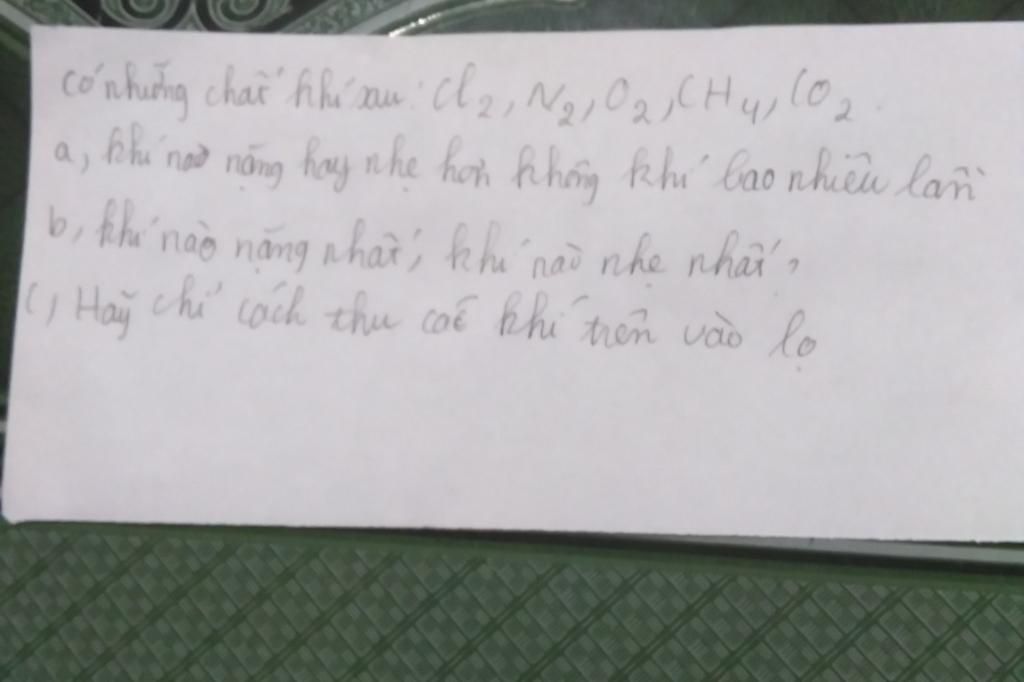 Có những chất khí sau: Cl2, N2, O2, CH4, CO2.
a, khí nào nặng hay nhẹ hơn không khí bao nhiêu lần
b, khí nào nặng nhất, khí nào nhẹ nhất,
C, Hãy chỉ cách thu các khí trên vào lọ